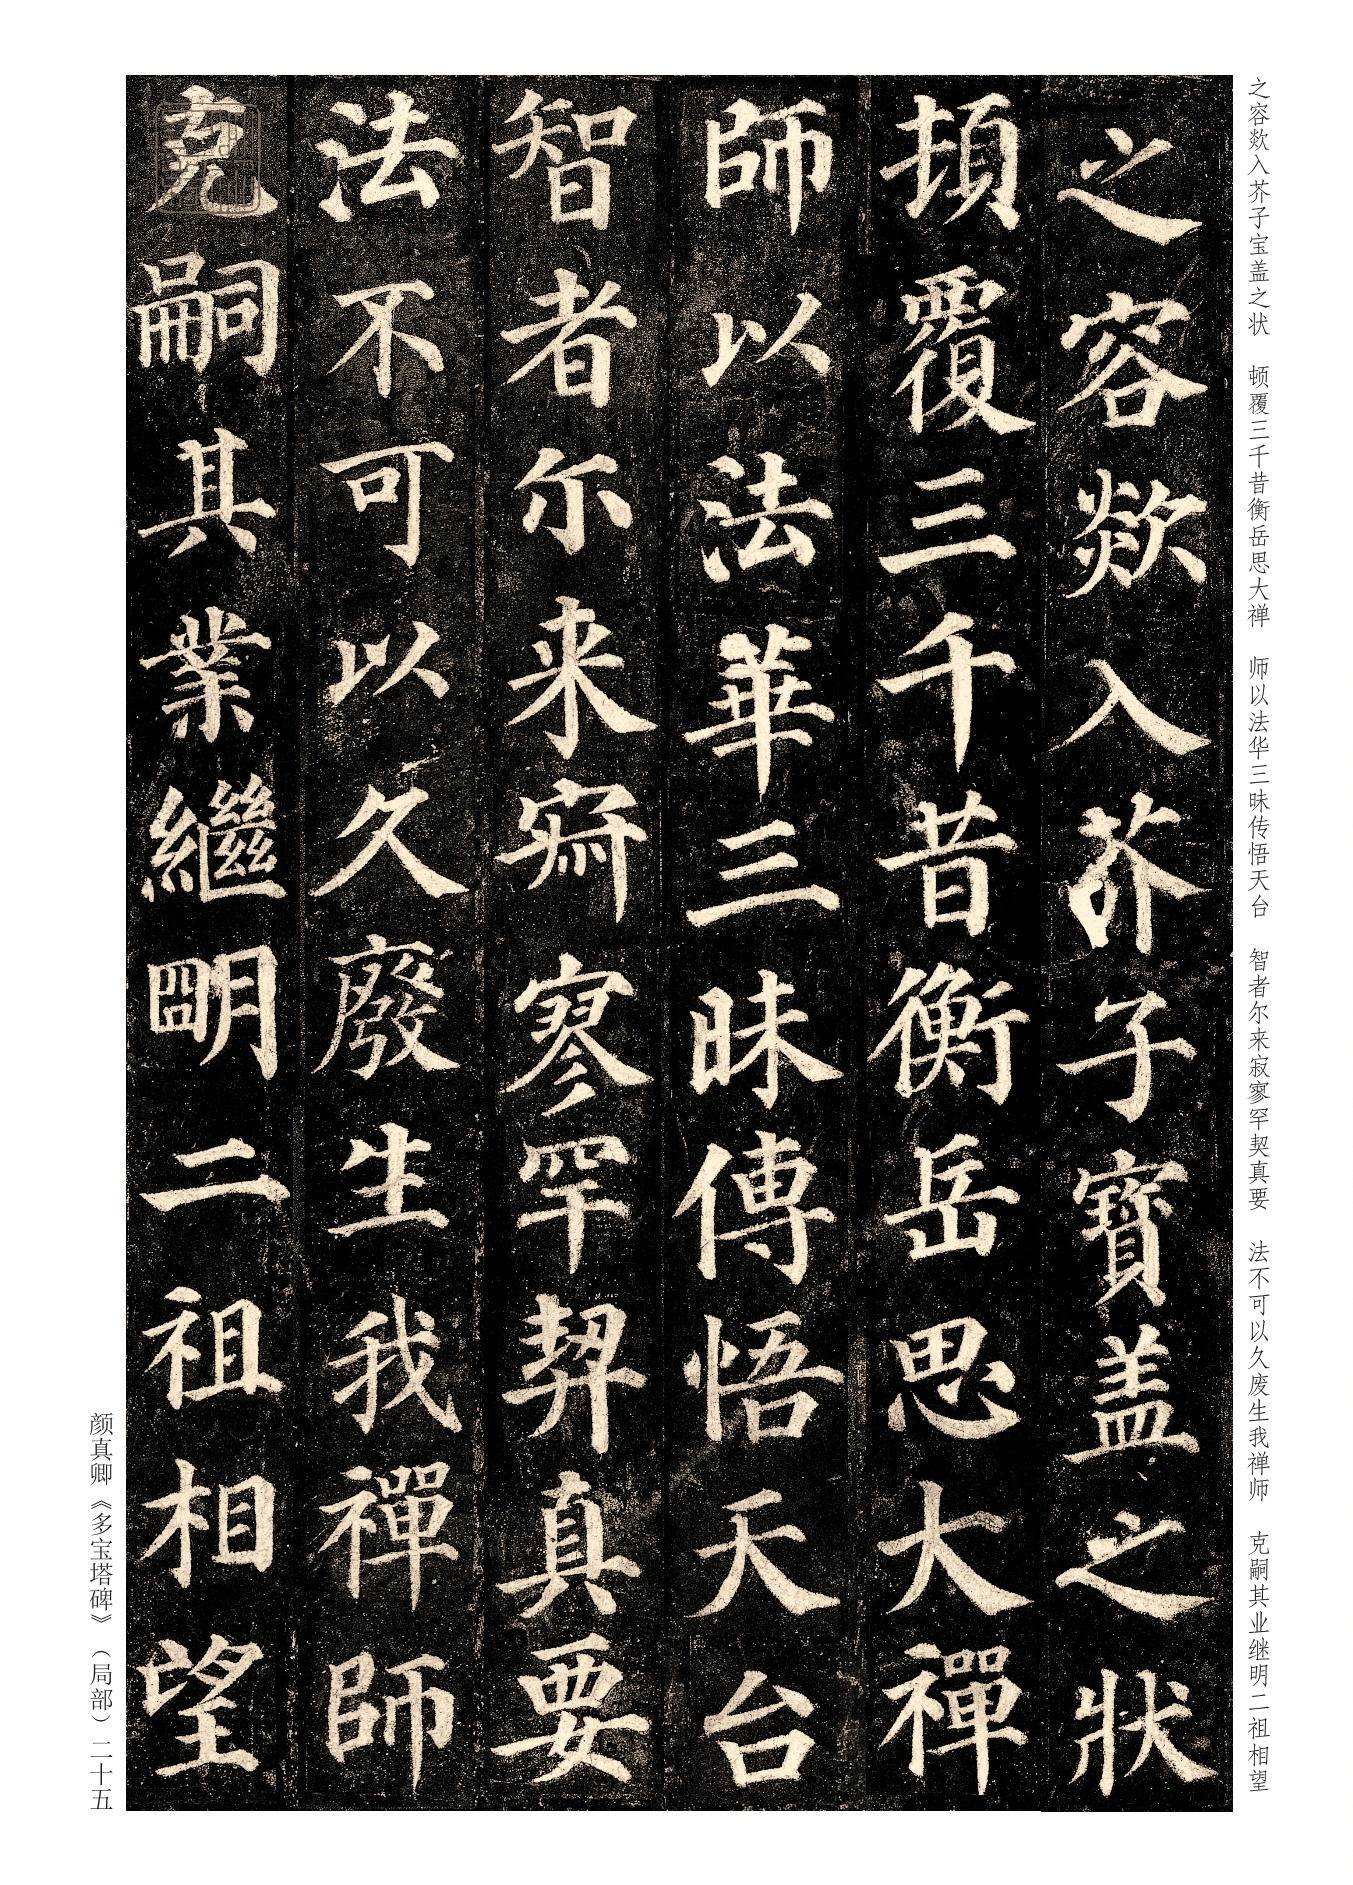 之容欻入芥子宝盖之状　顿覆三千昔衡岳思大禅　师以法华三昧传悟天台　智者尔来寂寥罕契真要　法不可以久废生我禅师　克嗣其业继明二祖相望
之容欻入芥子寶盖之狀
頓覆三千昔衡岳思大禪
師以法華三昧傳悟天台
智者尔来寂寥罕契真要
法不可以久廢生我禪師
克嗣其業繼明二祖相望
颜真卿《多宝塔碑》（局部）二十五